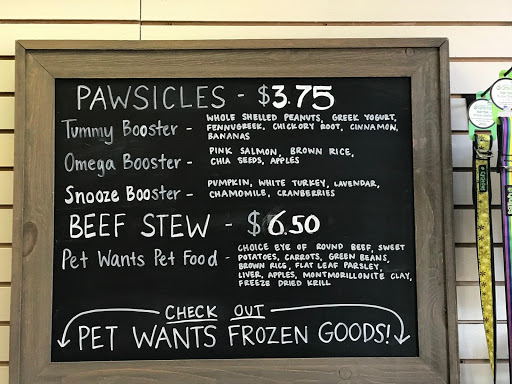 PAWSICLES - $3.75
Tummy Booster - WHOLE SHELLED PEANUTS, GREEK YOGURT,
FENNUGREEK, CHICKORY ROOT, CINNAMON,
BANANAS
Omega Booster - PINK SALMON, BROWN RICE,
CHIA SEEDS, APPLES
Snooze Booster - PUMPKIN, WHITE TURKEY, LAVENDAR,
CHAMOMILE, CRANBERRIES
BEEF STEW - $6.50
Pet Wants Pet Food - CHOICE EYE OF ROUND BEEF, SWEET
POTATOES, CARROTS, GREEN BEANS,
BROWN RICE, FLAT LEAF PARSLEY,
LIVER, APPLES, MONTMORILLONITE CLAY,
FREEZE DRIED KRILL
CHECK OUT
PET WANTS FROZEN GOODS!